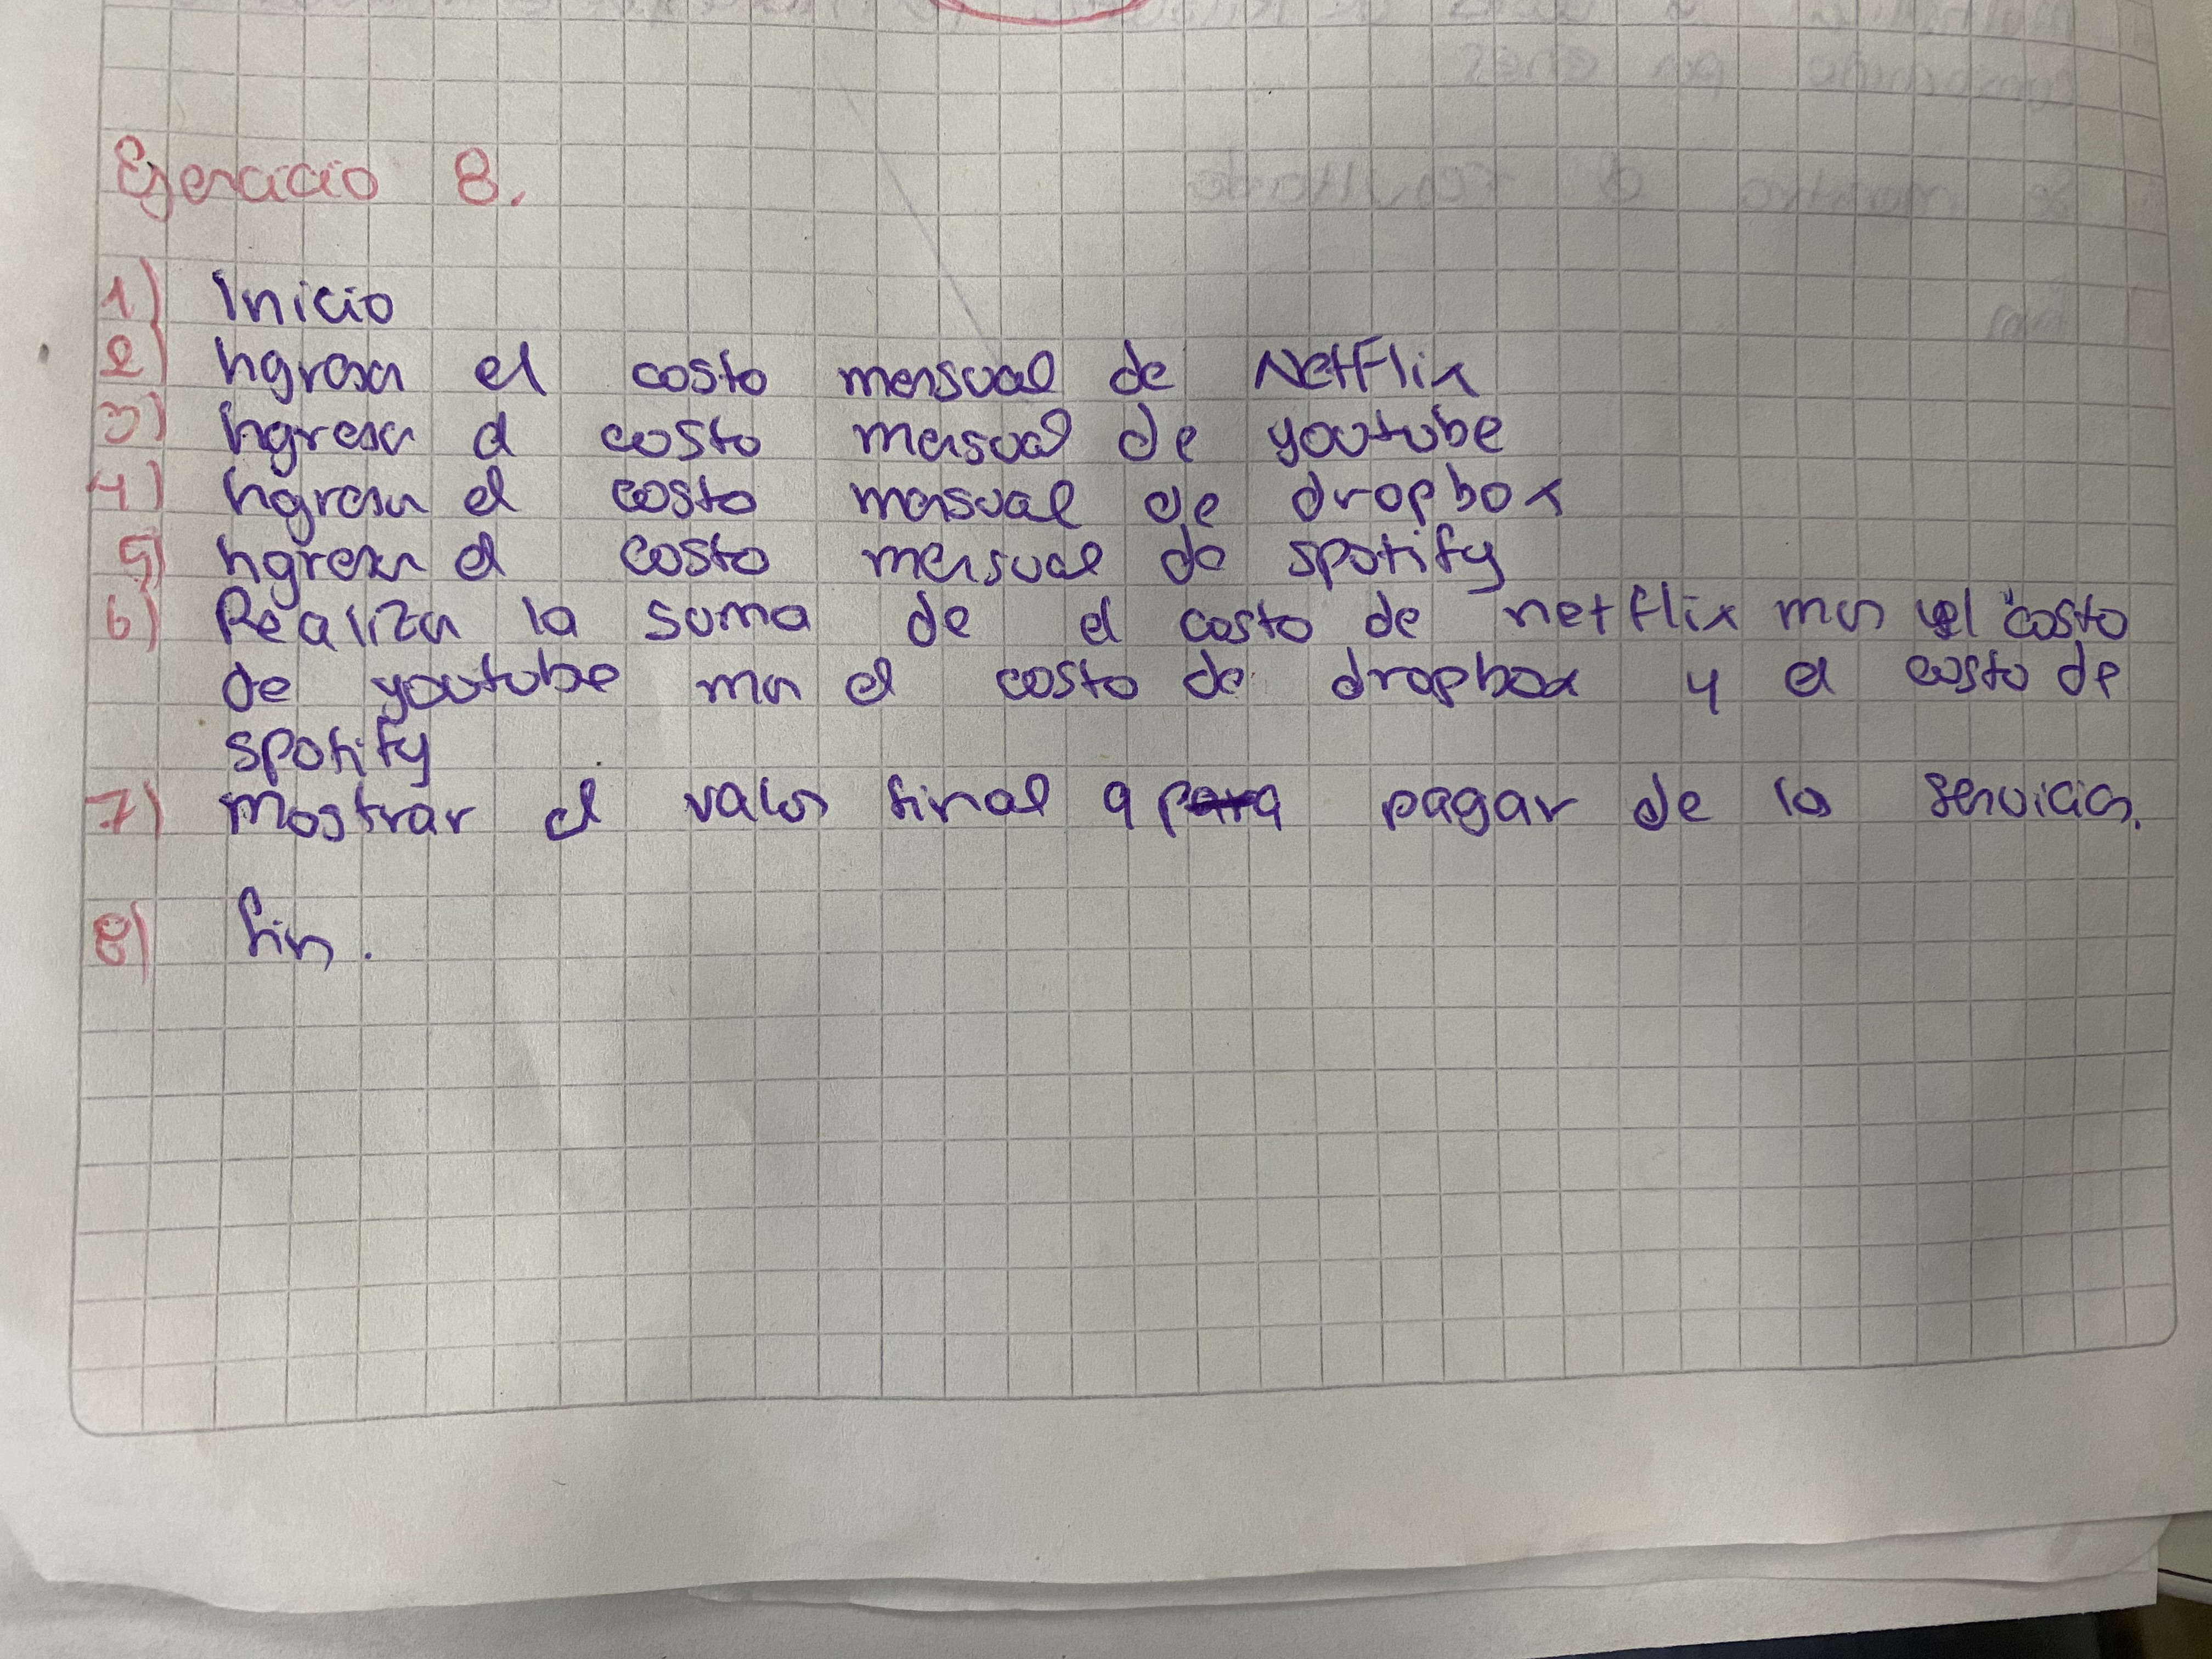 Ejercicio 8.
1) Inicio
2) Ingresar el costo mensual de Netflix
3) Ingresar el costo mensual de youtube
4) Ingresar el costo mensual de dropbox
5) Ingresar el costo mensual de spotify
6) Realizar la suma de el costo de netflix mas el costo
de youtube mas el costo de dropbox y el costo de
spotify
7) mostrar el valor final a pagar de lo servicios.
8) fin.